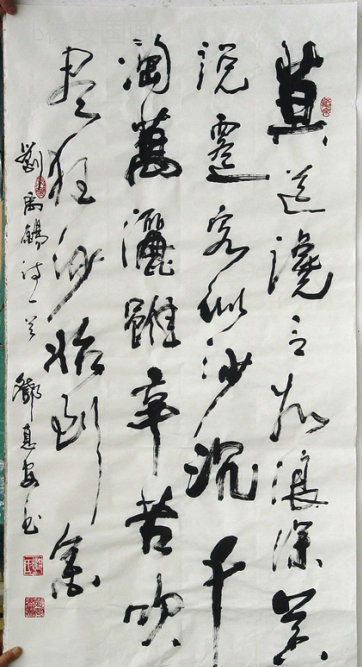 莫道讒言如浪深莫
说遷客似沙沉千
淘萬灑雖辛苦吹
尽狂沙始到金
劉禹錫诗一首 鄧安书